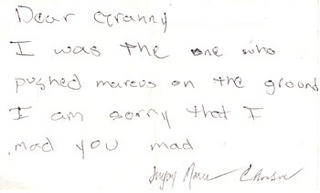 Dear Granny
I was the one who
pushed marcus on the ground
I am sorry that I
mad you mad